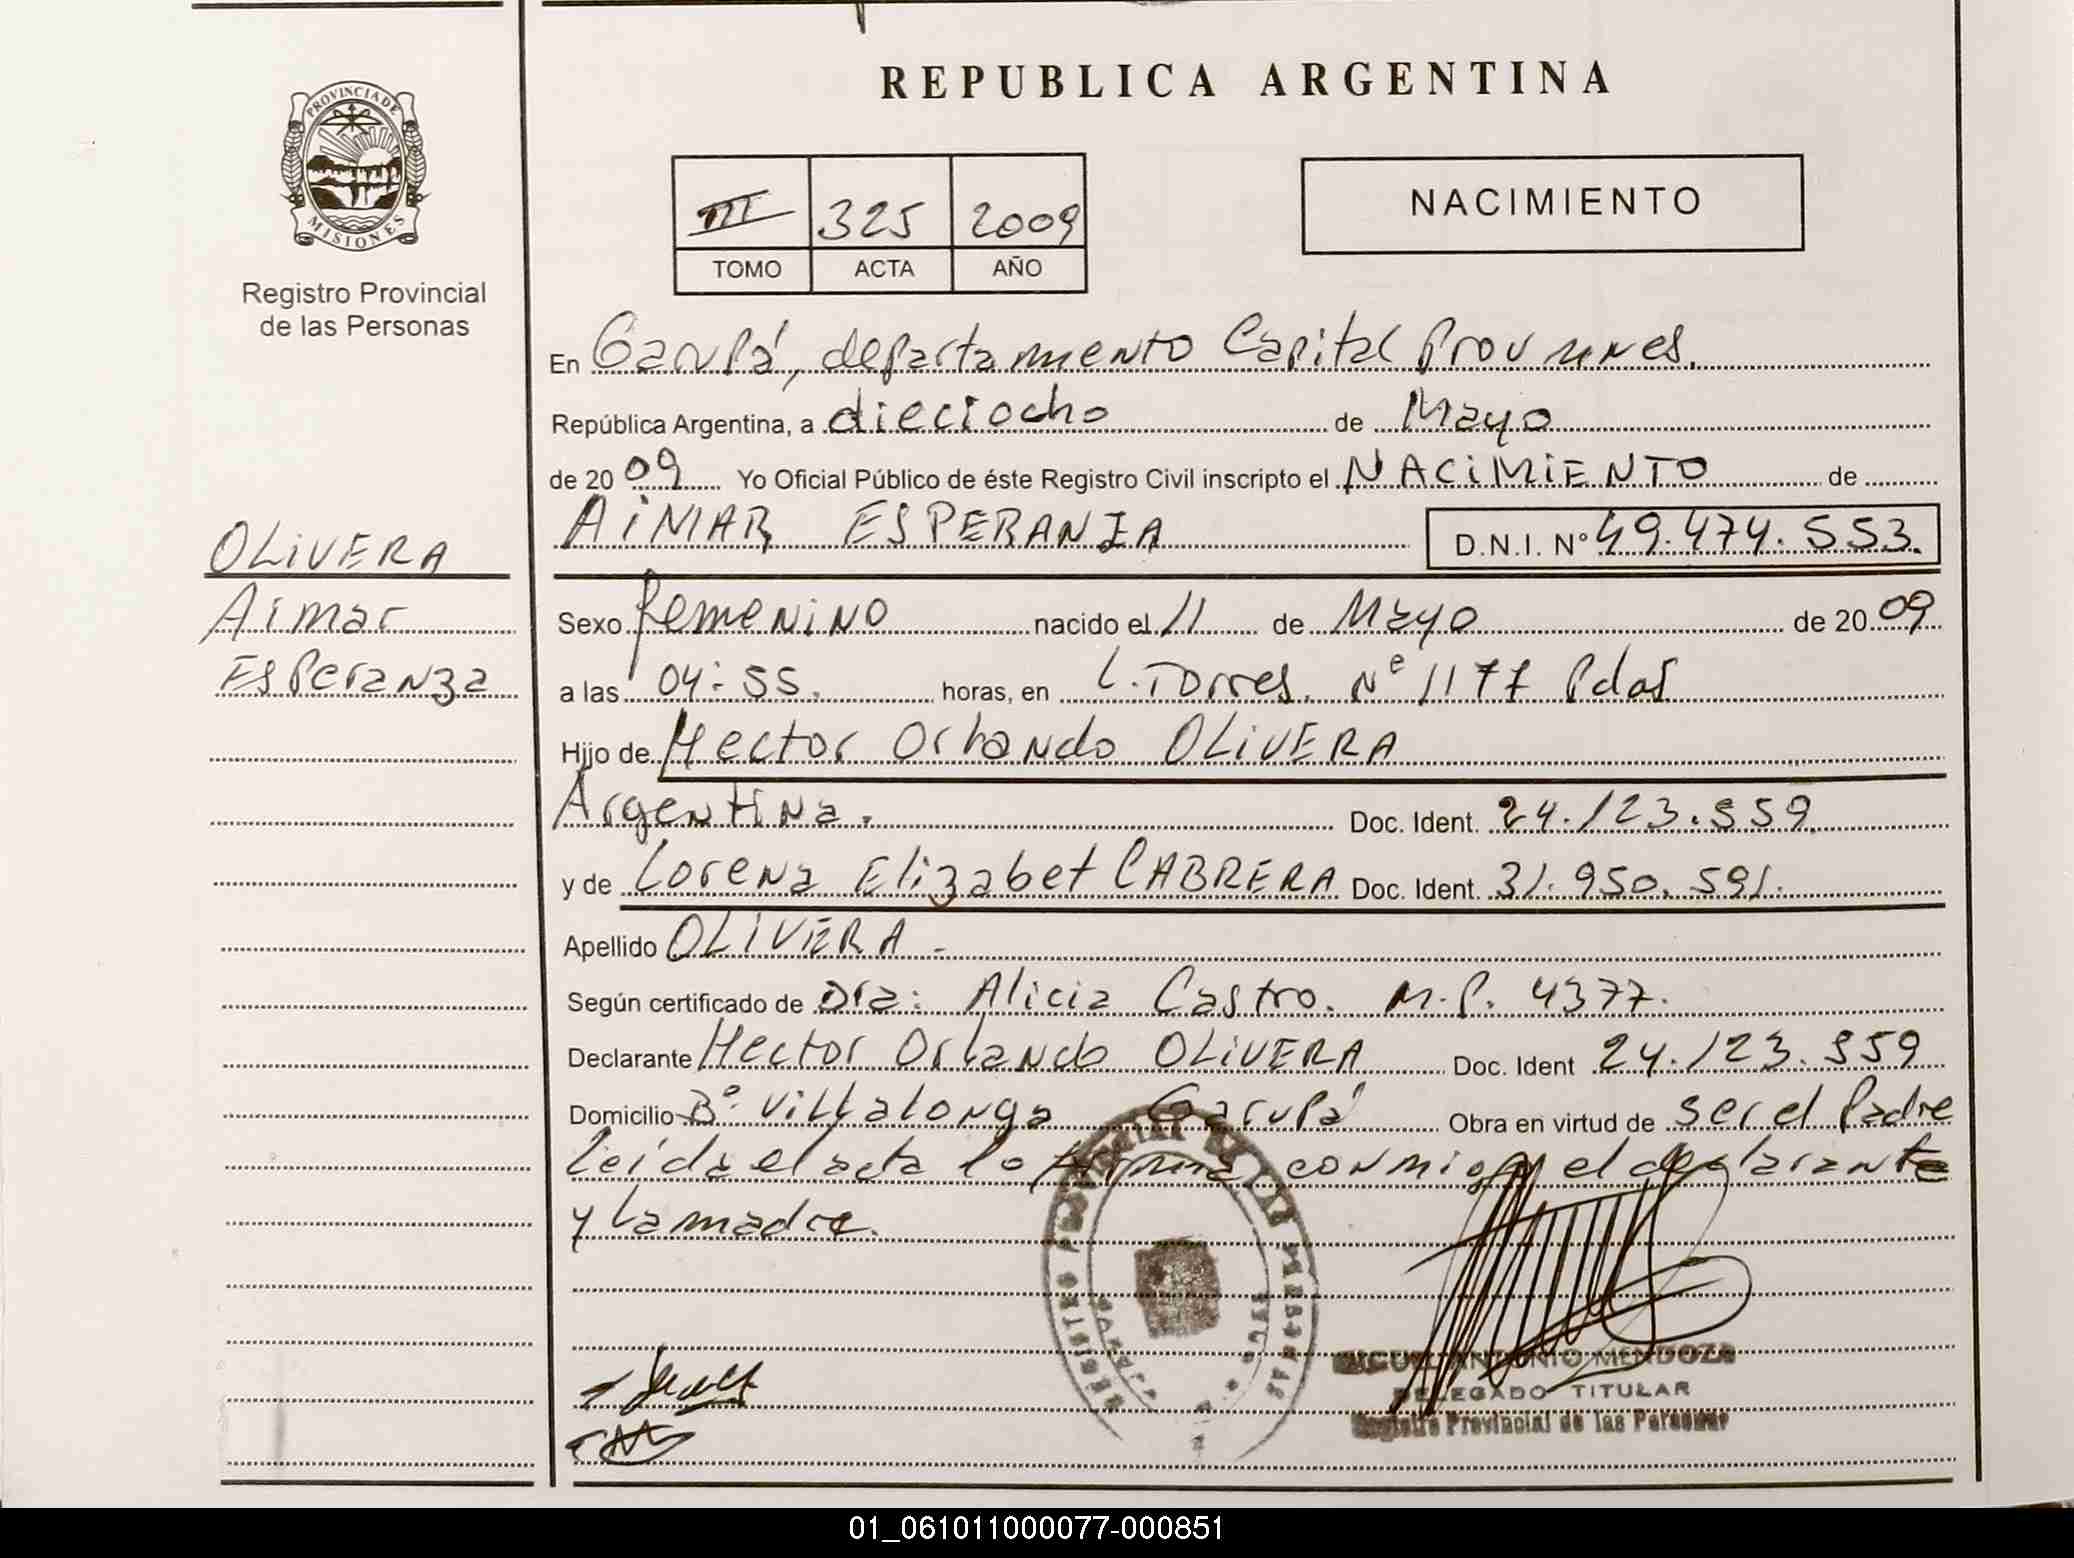 REPUBLICA ARGENTINA
PROVINCIA DE
MISIONES
Registro Provincial
de las Personas
III 325 2009
TOMO ACTA AÑO
NACIMIENTO
En Garupá, departamento Capital Prov. de Misiones.
República Argentina, a dieciocho de Mayo
de 2009 Yo Oficial Público de éste Registro Civil inscripto el NACIMIENTO de
AIMAR ESPERANZA D.N.I. Nº 49.474.553.
OLIVERA
Aimar
Esperanza
Sexo femenino nacido el 11 de Mayo de 2009
a las 04:55. horas, en L. Torres. Nº 1177 Pdas
Hijo de Hector Orlando OLIVERA
Argentina. Doc. Ident. 24.123.559
y de Lorena Elizabet CABRERA Doc. Ident. 31.950.591.
Apellido OLIVERA -
Según certificado de Dra: Alicia Castro. M.P. 4377.
Declarante Hector Orlando OLIVERA Doc. Ident 24.123.559
Domicilio Bº Villalonga Garupá Obra en virtud de ser el Padre
Leída el acta lo firma conmigo el declarante
y la madre.
MIGUEL ANTONIO MENDOZA
DELEGADO TITULAR
Registro Provincial de las Personas
01_061011000077-000851